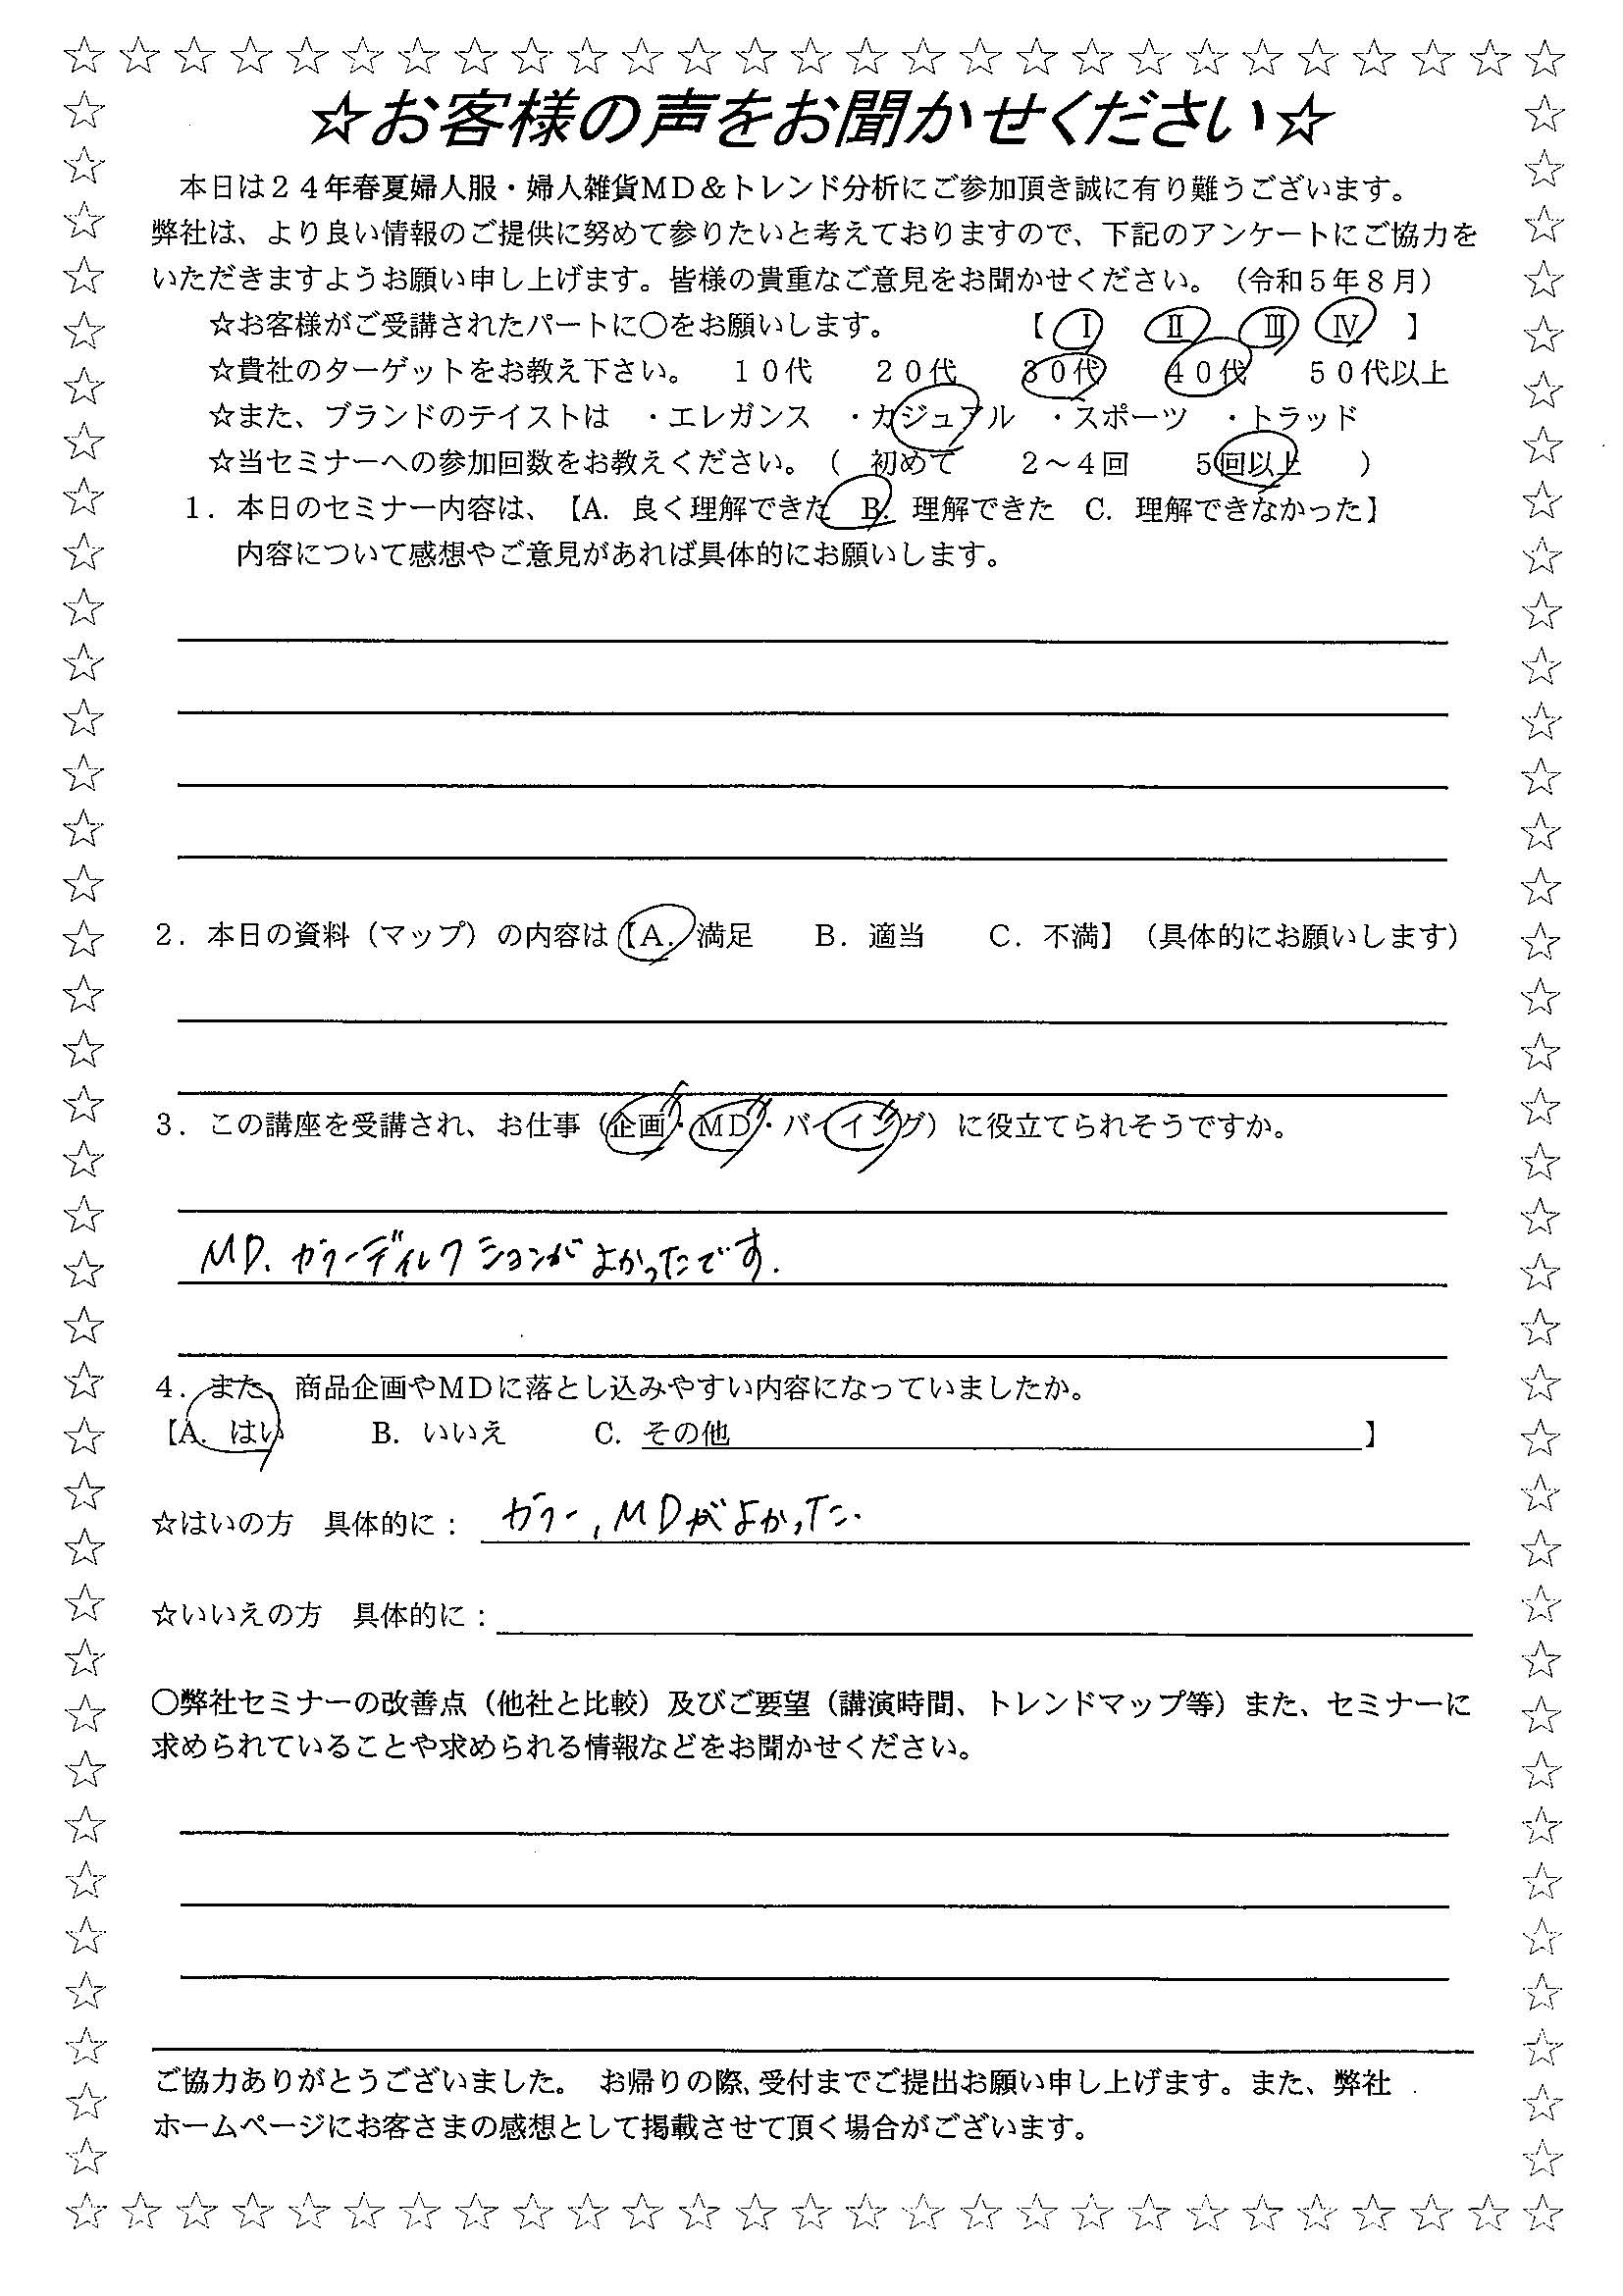 ☆お客様の声をお聞かせください☆
本日は２４年春夏婦人服・婦人雑貨ＭＤ＆トレンド分析にご参加頂き誠に有り難うございます。
弊社は、より良い情報のご提供に努めて参りたいと考えておりますので、下記のアンケートにご協力を
いただきますようお願い申し上げます。皆様の貴重なご意見をお聞かせください。（令和５年８月）
☆お客様がご受講されたパートに〇をお願いします。　【　Ⅰ　Ⅱ　Ⅲ　Ⅳ　】
☆貴社のターゲットをお教え下さい。　１０代　２０代　３０代　４０代　５０代以上
☆また、ブランドのテイストは　・エレガンス　・カジュアル　・スポーツ　・トラッド
☆当セミナーへの参加回数をお教えください。（　初めて　２～４回　５回以上　）
１．本日のセミナー内容は、【A．良く理解できた　B．理解できた　C．理解できなかった】
内容について感想やご意見があれば具体的にお願いします。
２．本日の資料（マップ）の内容は【A．満足　B．適当　C．不満】（具体的にお願いします）
３．この講座を受講され、お仕事（企画・ＭＤ・バイイング）に役立てられそうですか。
MD. カラーディレクションがよかったです.
４．また、商品企画やＭＤに落とし込みやすい内容になっていましたか。
【A．はい　B．いいえ　C．その他　】
☆はいの方　具体的に：カラー, MDがよかった.
☆いいえの方　具体的に：
〇弊社セミナーの改善点（他社と比較）及びご要望（講演時間、トレンドマップ等）また、セミナーに
求められていることや求められる情報などをお聞かせください。
ご協力ありがとうございました。　お帰りの際、受付までご提出お願い申し上げます。また、弊社
ホームページにお客さまの感想として掲載させて頂く場合がございます。